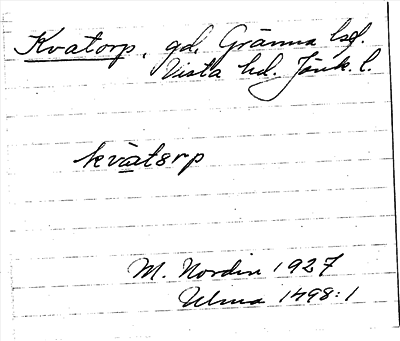 Kvatorp, gd, Gränna lsf.
Vista hd. Jönk. l.
kvatorp
M. Nordin 1927
Ulma 1498:1